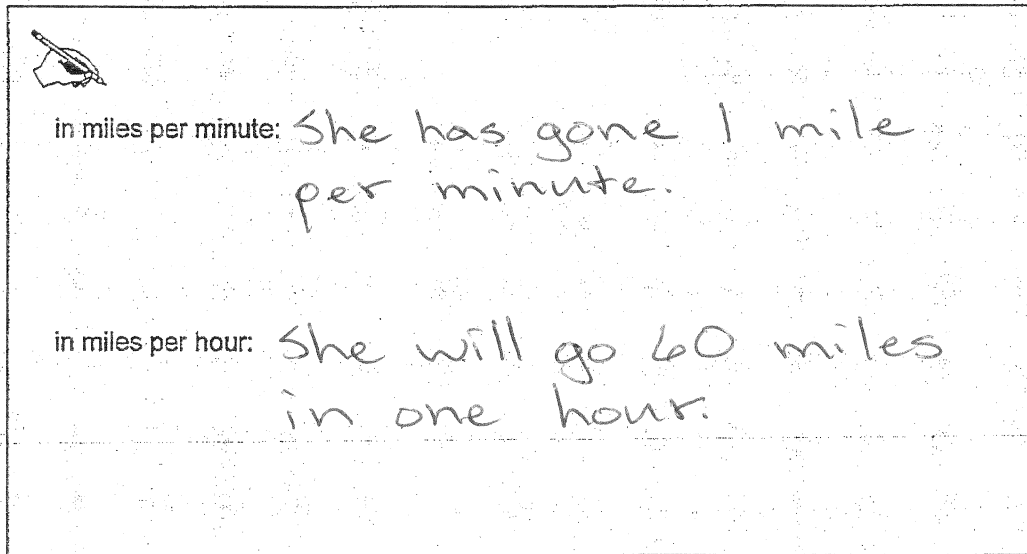 in miles per minute: She has gone 1 mile
per minute.
in miles per hour: She will go 60 miles
in one hour.